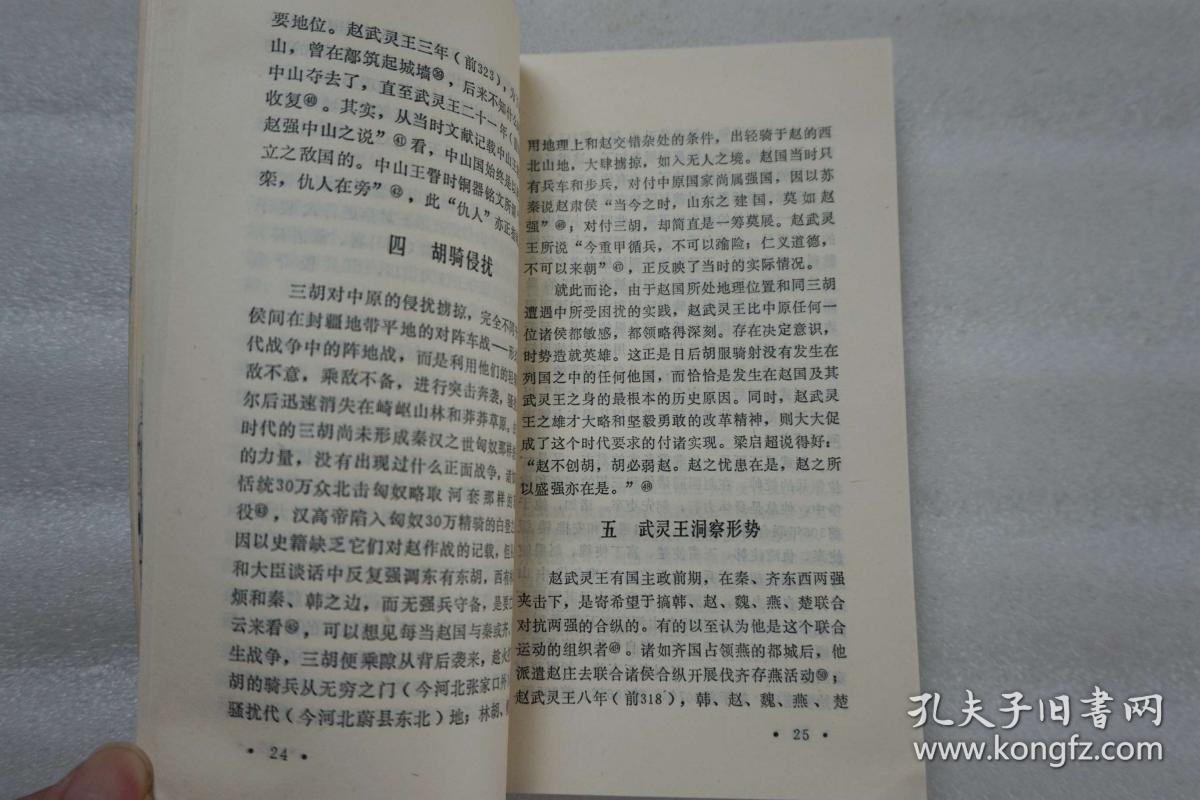 要地位。赵武灵王三年（前323），为
山，曾在鄗筑起城墙㊴，后来不知什么
中山夺去了，直至武灵王二十一年（
收复㊵。其实，从当时文献记载中山王
赵强中山之说”㊶看，中山国始终是
立之敌国的。中山王𰯼时铜器铭文所
栾，仇人在旁”㊷，此“仇人”亦正
四 胡骑侵扰
三胡对中原的侵扰掳掠，完全不同
侯间在封疆地带平地的对阵车战——形
代战争中的阵地战，而是利用他们的轻
敌不意，乘敌不备，进行突击奔袭，骚
尔后迅速消失在崎岖山林和莽莽草原。
时代的三胡尚未形成秦汉之世匈奴那样
的力量，没有出现过什么正面战争，诸
恬统30万众北击匈奴略取河套那样的
役㊸，汉高帝陷入匈奴30万精骑的白登
因以史籍缺乏它们对赵作战的记载，但
和大臣谈话中反复强调东有东胡，西有
烦和秦、韩之边，而无强兵守备，是要
云来看㊺，可以想见每当赵国与秦或齐、
生战争，三胡便乘隙从背后袭来，趁火
胡的骑兵从无穷之门（今河北张家口
骚扰代（今河北蔚县东北）地；林胡、
• 24 •
用地理上和赵交错杂处的条件，出轻骑于赵的西
北山地，大肆掳掠，如入无人之境。赵国当时只
有兵车和步兵，对付中原国家尚属强国，因以苏
秦说赵肃侯“当今之时，山东之建国，莫如赵
强”㊻；对付三胡，却简直是一筹莫展。赵武灵
王所说“今重甲循兵，不可以踰险；仁义道德，
不可以来朝”㊼，正反映了当时的实际情况。
就此而论，由于赵国所处地理位置和同三胡
遭遇中所受困扰的实践，赵武灵王比中原任何一
位诸侯都敏感，都领略得深刻。存在决定意识，
时势造就英雄。这正是日后胡服骑射没有发生在
列国之中的任何他国，而恰恰是发生在赵国及其
武灵王之身的最根本的历史原因。同时，赵武灵
王之雄才大略和坚毅勇敢的改革精神，则大大促
成了这个时代要求的付诸实现。梁启超说得好：
“赵不创胡，胡必弱赵。赵之忧患在是，赵之所
以盛强亦在是。”㊽
五 武灵王洞察形势
赵武灵王有国主政前期，在秦、齐东西两强
夹击下，是寄希望于搞韩、赵、魏、燕、楚联合
对抗两强的合纵的。有的以至认为他是这个联合
运动的组织者㊾。诸如齐国占领燕的都城后，他
派遣赵庄去联合诸侯合纵开展伐齐存燕活动㊿；
赵武灵王八年（前318），韩、赵、魏、燕、楚
• 25 •
孔夫子旧书网
www.kongfz.com